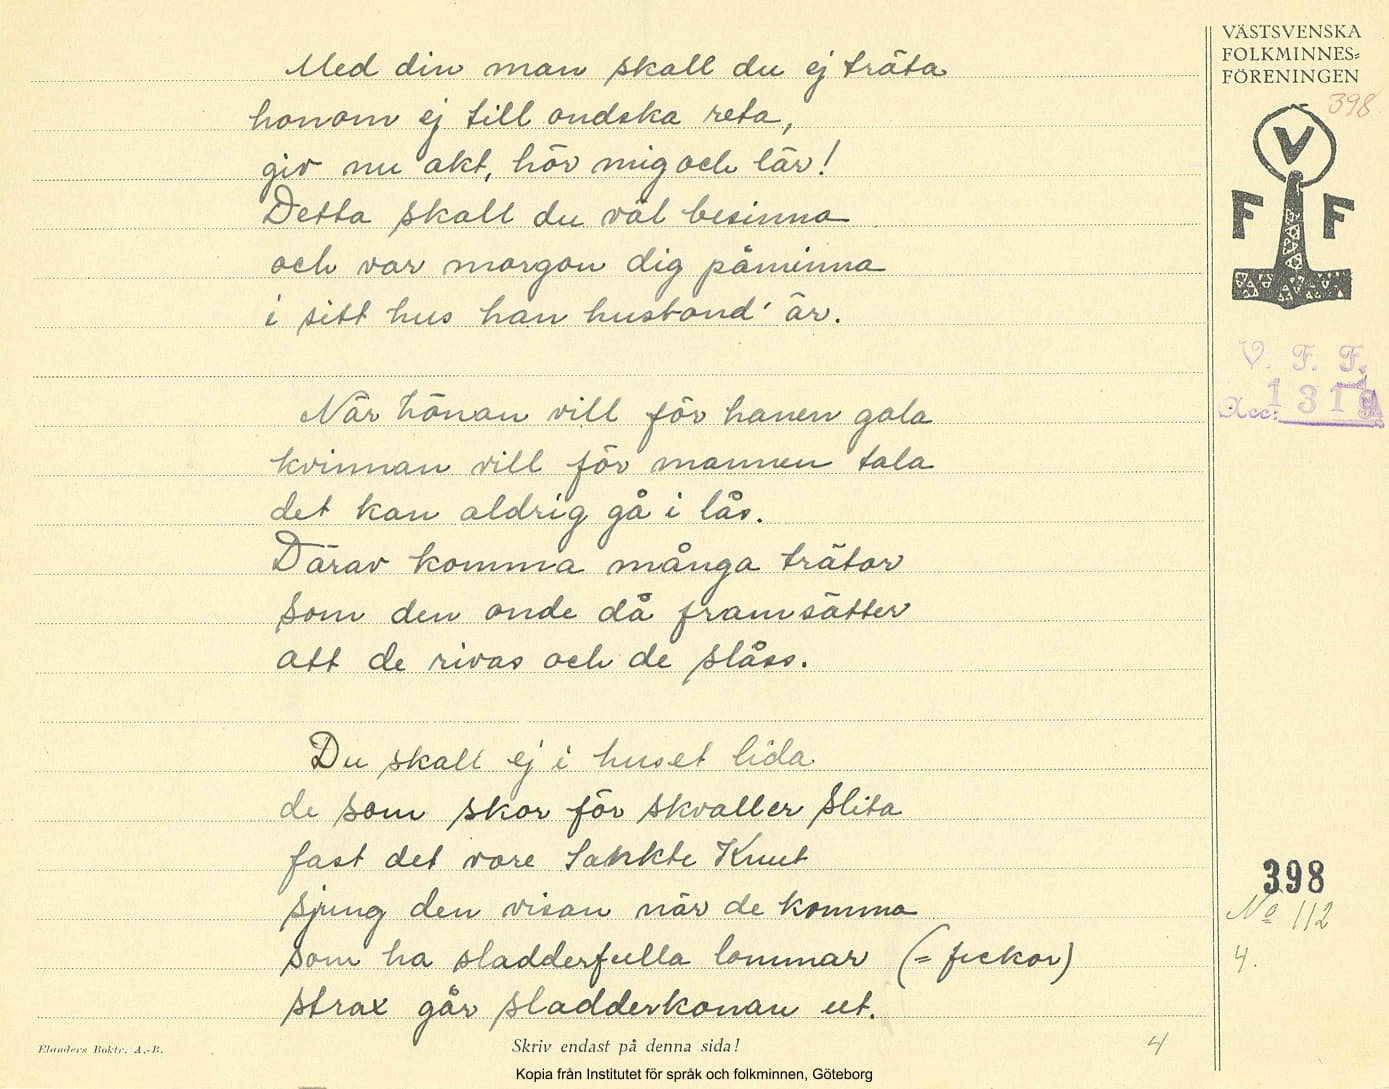 Med din man skall du ej träta
honom ej till ondska reta,
giv nu akt, hör mig och lär!
Detta skall du väl besinna
och var morgon dig påminna
i sitt hus han husbond' är.
När hönan vill för hanen gala
kvinnan vill för mannen tala
det kan aldrig gå i lås.
Därav komma många trätor
som den onde då framsätter
att de rivas och de slåss.
Du skall ej i huset lida
de som skor för skvaller slita
fast det vore Sankte Knut
sjung den visan när de komma
som ha sladderfulla lommar (= fickor)
strax går sladderkonan ut.
Elanders Boktr. A.-B.
Skriv endast på denna sida!
4
Kopia från Institutet för språk och folkminnen, Göteborg
VÄSTSVENSKA
FOLKMINNES=
FÖRENINGEN
398
V
F F
V. F. F.
Acc: 1319
398
No 112
4.